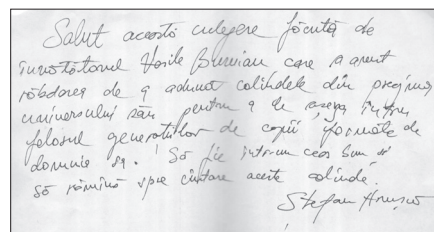 Salut această culegere făcută de
învățătorul Vasile care a avut
răbdarea de a aduna colindele din preajma
universului său pentru a le așeza întru
folosul generațiilor de copii, formate de
domnia sa. Să fie într-un ceas bun și
să rămînă spre cîntare aceste colinde.
Ștefan Hrușcă